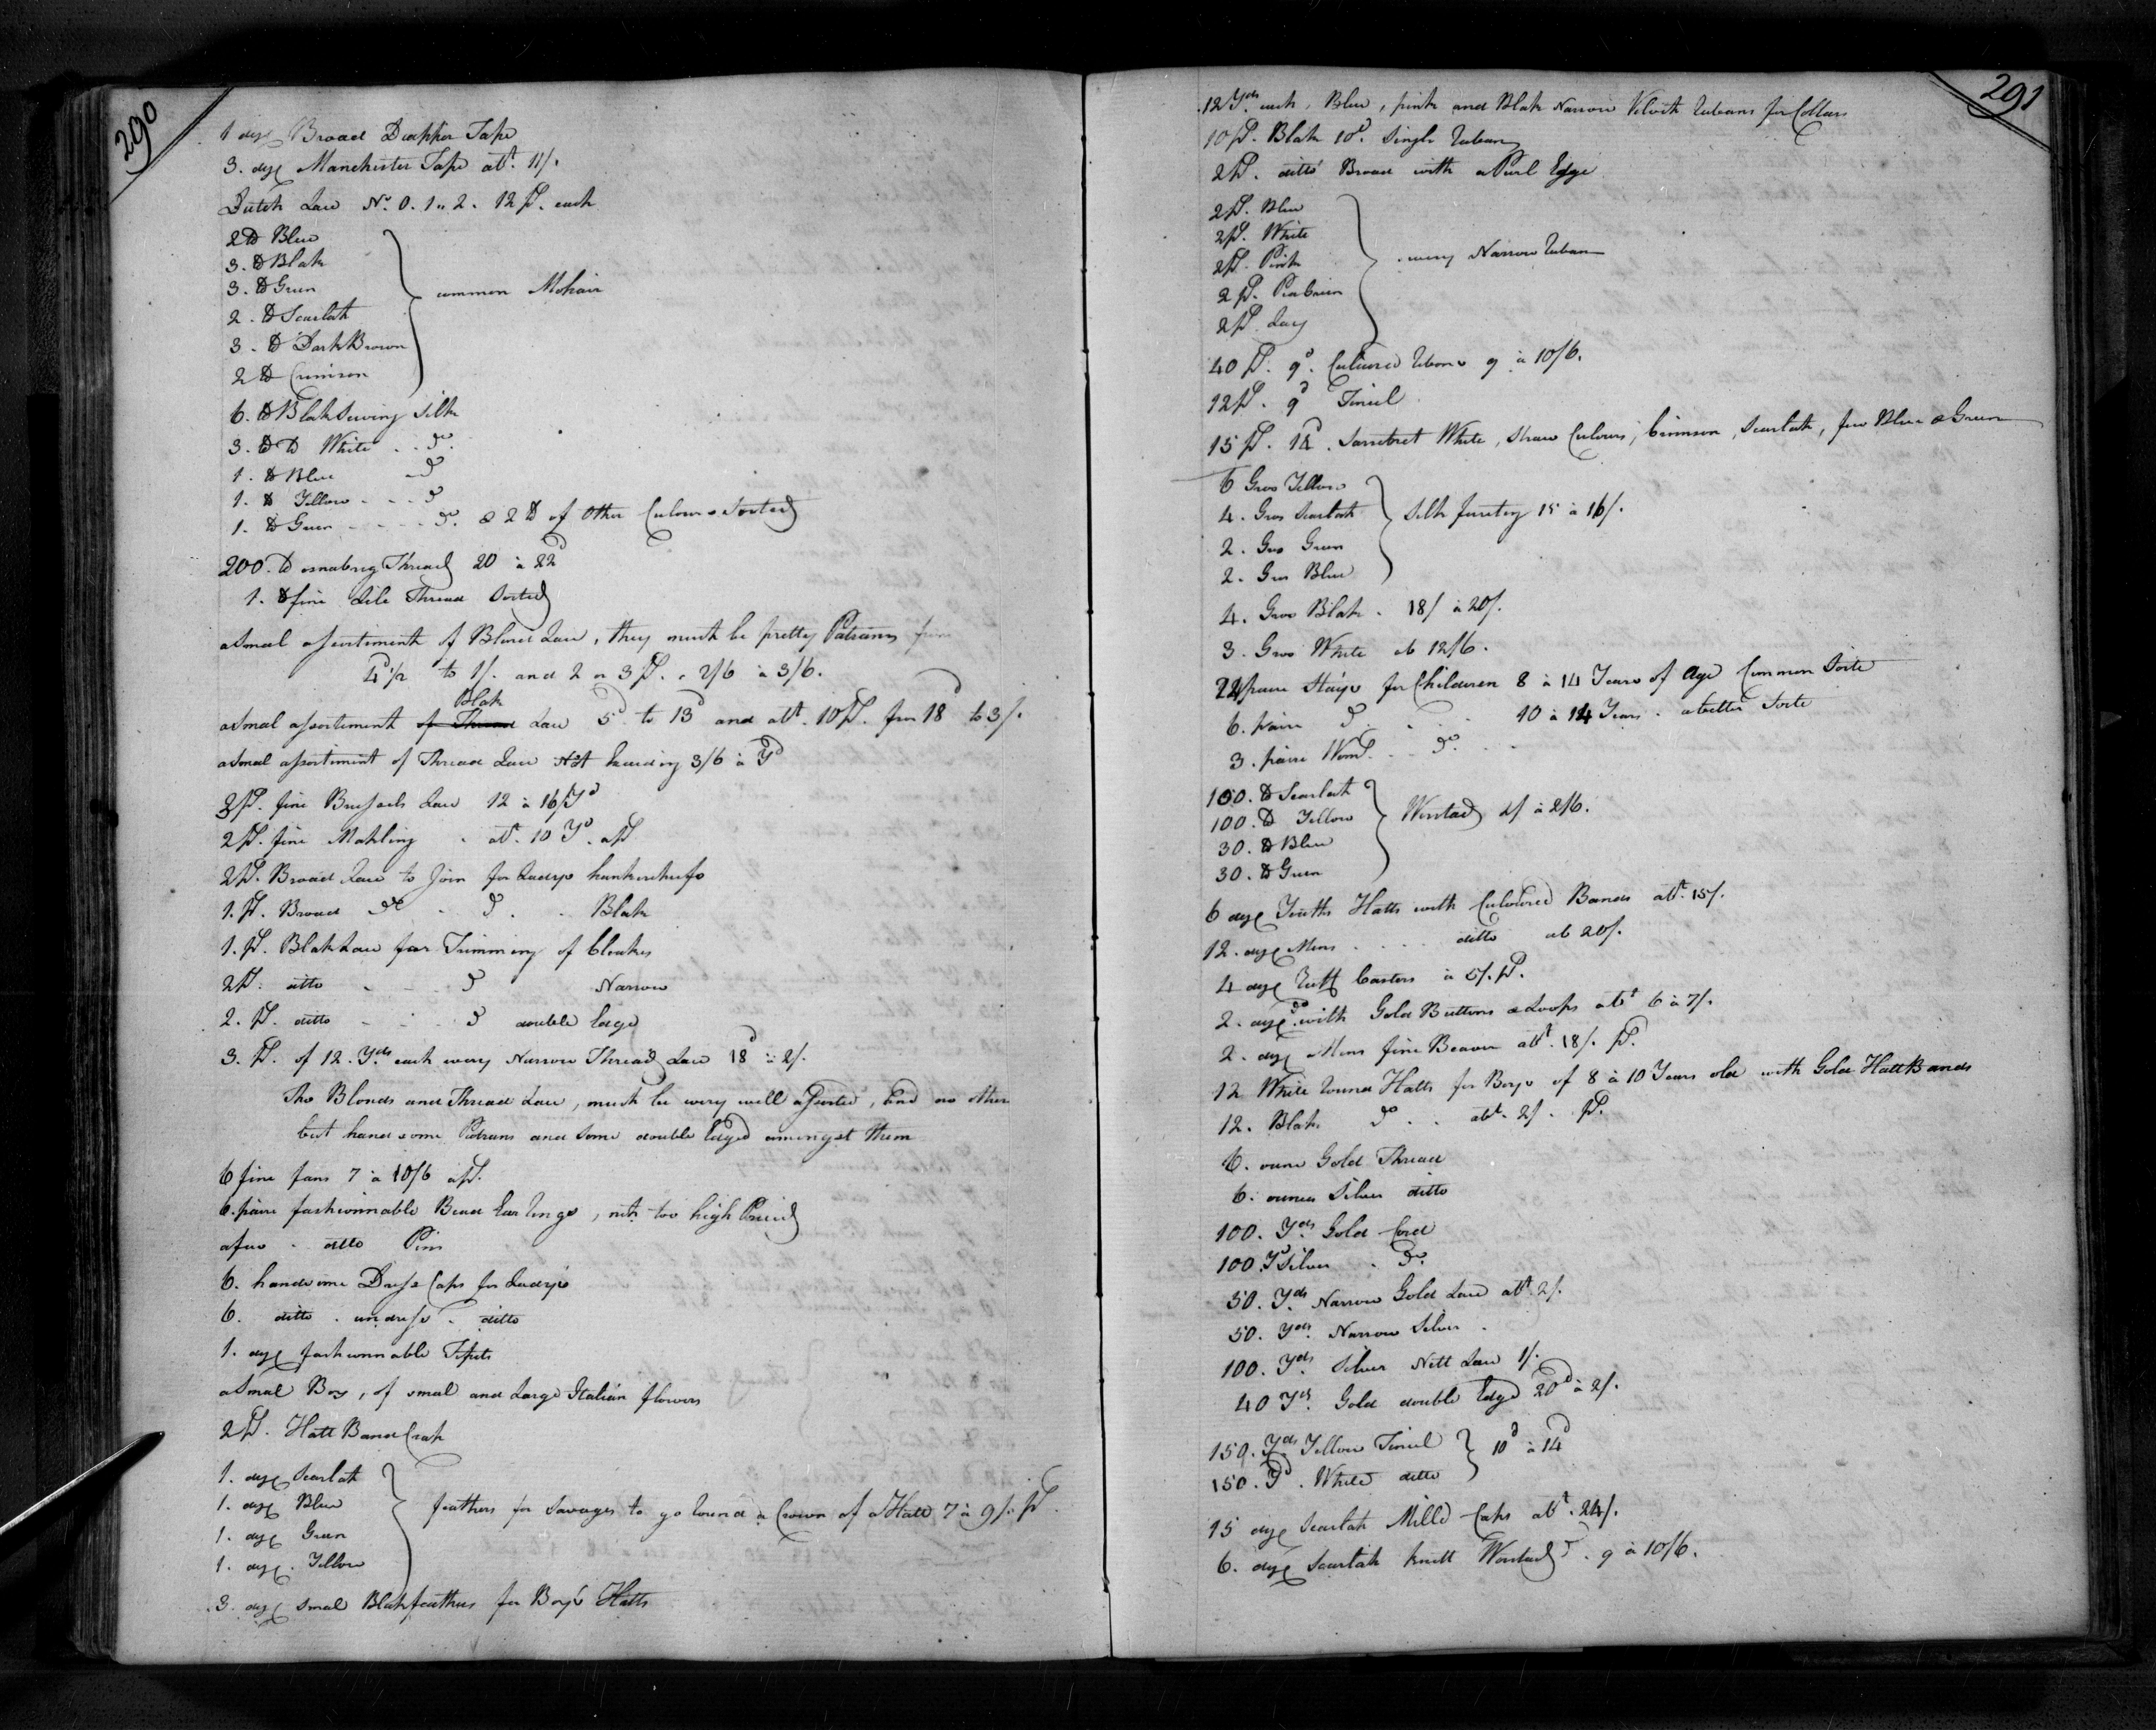 290
1 doz Broad Diapper Tape
3. doz Manchester Tape abt. 11/.
Dutch Lace No. 0. 1 .. 2. 12 ps. each
2 lb Blue
3. lb Blak
3. lb Green
2. lb Scarlath
3. lb Dark Brown
2 lb Crimson
common Mohair
6. lb Blak Sewing Silk
3. lb D White . . do.
1. lb Blue do
1. lb Yellow - - - do
1. lb Green - - - - do. & 2 lb of Other Culours Sorted
200. lb osnabrig Thread 20 à 22d
1. lb fine Lile Thread Sorted
a Smal assortiment of Blond Lace, they must be pretty Patrans from
4d 1/2 to 1/. and 2 or 3 ps. . 2/6 à 3/6.
a Smal assortiment of Thread Blak Lace 5d to 13d and abt. 10 ps. from 18d to 3/.
a Smal assortiment of Thread Lace Not Exceeding 3/6 à Yd
2 ps. fine Brussels Lace 12 à 16/ Yd
2 ps. fine Mahling . at. 10 Yd. a ps
2 ps. Broad Lace to Join for Ladys hankerchefs
1. ps. Broad do - do . . Blak
1. ps. Blak Lace for Trimming of Cloakes
2 ps. ditto - - do Narrow
2. ps. ditto - - do double Edge
3. ps. of 12. Yds each wery Narrow Thread Lace 18d à 2/.
The Blonds and Thread Lace, must be wery well assorted, and no other
but handsome Patrans and Some double Edged amongst them
6 fine fans 7 à 10/6 a ps.
6. paire fashionnable Bead Ear Rings, not too high Priced
a few - ditto Pins
6. handsome Dress Caps for Ladys
6. ditto . undress . ditto
1. doz fashionnable Tipets
a Smal Box, of small and Large Italian flowers
2 ps. Hatt Band Crap
1. doz Scarlath
1. doz Blue
1. doz Green
1. doz. Yellow
feathers for Savages to go Round a Crown of a Hatt 7 à 9/. ps.
3. doz Smal Blak feathers for Boys Hatts
291
12 Yds each, Blue, pink and Blak Narrow Velvith Rubans for Collars
10 ps. Blak 10d. Single Ruban
2 ps. ditto Broad with a Purl Egge
2 ps. Blue
2 ps. White
2 ps. Pink
2 ps. Pea Green
2 ps.
wery Narrow Ruban
40 ps. 9d. Culoured Ribans 9 à 10/6.
12 ps. 9d Tincel
15 ps. Sarsebret White, Straw Culours, Crimson, Scarlath, few Blue & Green
6 Gros Yellow
4. Gros Scarlath
2. Gros Green
2. Gros Blue
Silk ferreting 15 à 16/.
4. Gros Blak . 18/ à 20/.
3. Gros White ab 12/6.
24 paire Stays for Children 8 à 14 Years of Age Common Sorte
6. paire do . . . 10 à 14 Years . a better Sorte
3. paire Woms. . . do. . .
100. lb Scarlath
100. lb Yellow
30. lb Blue
30. lb Green
Worstad 2/ à 2/6.
6 doz Youths Hatts with Culoured Bands abt. 15/.
12. doz Mens . . . . ditto ab 20/.
4 doz Ruff Castors à 5/. ps.
2. doz. do with Gold Buttons & Loops abt 6 à 7/.
2. doz Mens fine Beaver abt. 18/. ps.
12 White Round Hatts for Boys of 8 à 10 Years old with Gold Hatt Bands
12. Blak do . . abt. 2/. ps.
6. ounce Gold Thread
6. ounces Silver ditto
100. Yds Gold Cord
100. Yd Silver . do.
50. Yds Narrow Gold Lace abt. 2/.
50. Yds. Narrow Silver .
100. Yds. Silver Nett Lace 1/.
40 Yds. Gold double Edge 20d à 2/.
150. Yds Yellow Tincel
150. Yd. White ditto
10d à 14d
15 doz Scarlath Milld Caps abt. 24/.
6. doz Scarlath knitt Worstad do. 9 à 10/6.